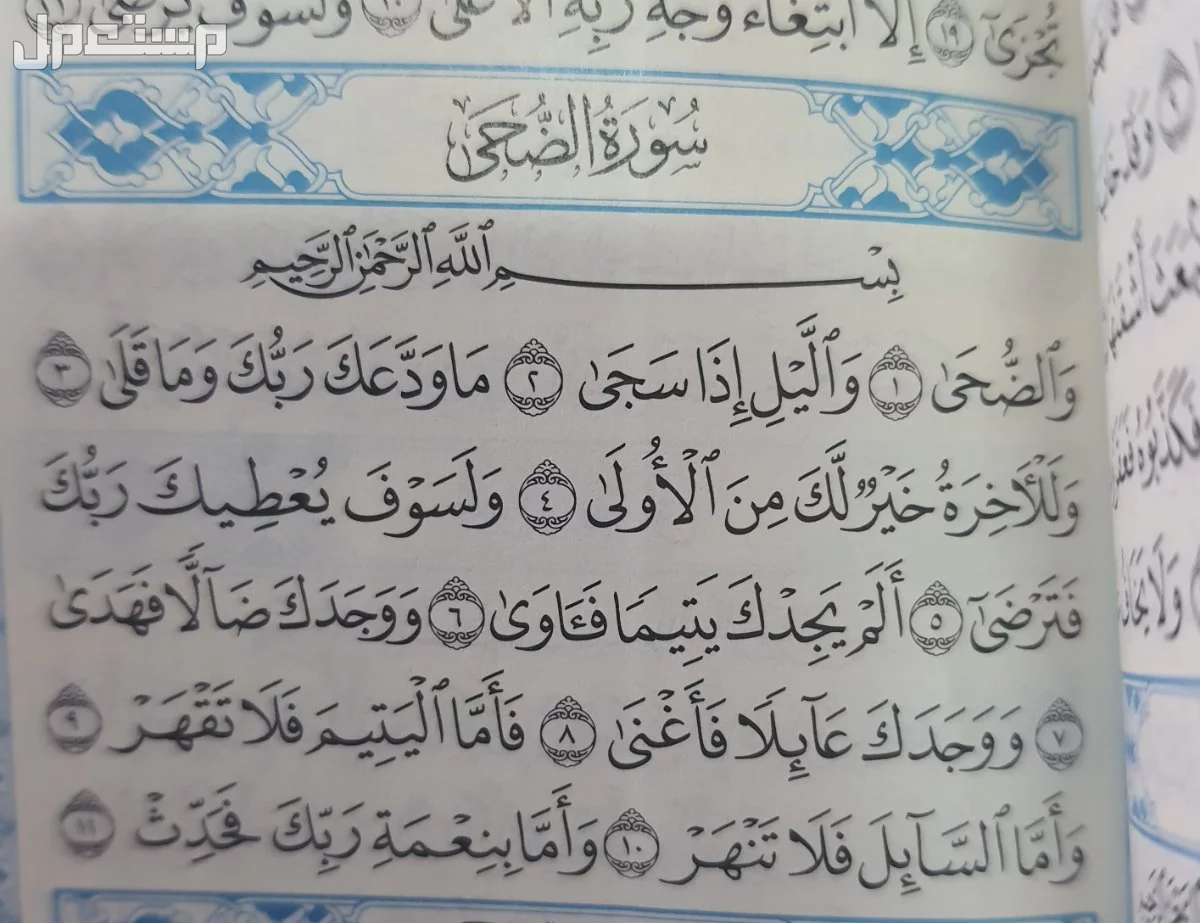 مستعمل
تُجْزَىٰٓ ١٩ إِلَّا ٱبْتِغَآءَ وَجْهِ رَبِّهِ ٱلْأَعْلَىٰ ٢٠ وَلَسَوْفَ يَرْضَىٰ ٢١
سُورَةُ الضُّحَىٰ
بِسْمِ ٱللَّهِ ٱلرَّحْمَٰنِ ٱلرَّحِيمِ
وَٱلضُّحَىٰ ١ وَٱلَّيْلِ إِذَا سَجَىٰ ٢ مَا وَدَّعَكَ رَبُّكَ وَمَا قَلَىٰ ٣
وَلَلْـَٔاخِرَةُ خَيْرٌ لَّكَ مِنَ ٱلْأُولَىٰ ٤ وَلَسَوْفَ يُعْطِيكَ رَبُّكَ
فَتَرْضَىٰٓ ٥ أَلَمْ يَجِدْكَ يَتِيمًا فَـَٔاوَىٰ ٦ وَوَجَدَكَ ضَآلًّا فَهَدَىٰ
٧ وَوَجَدَكَ عَآئِلًا فَأَغْنَىٰ ٨ فَأَمَّا ٱلْيَتِيمَ فَلَا تَقْهَرْ ٩
وَأَمَّا ٱلسَّآئِلَ فَلَا تَنْهَرْ ١٠ وَأَمَّا بِنِعْمَةِ رَبِّكَ فَحَدِّثْ ١١